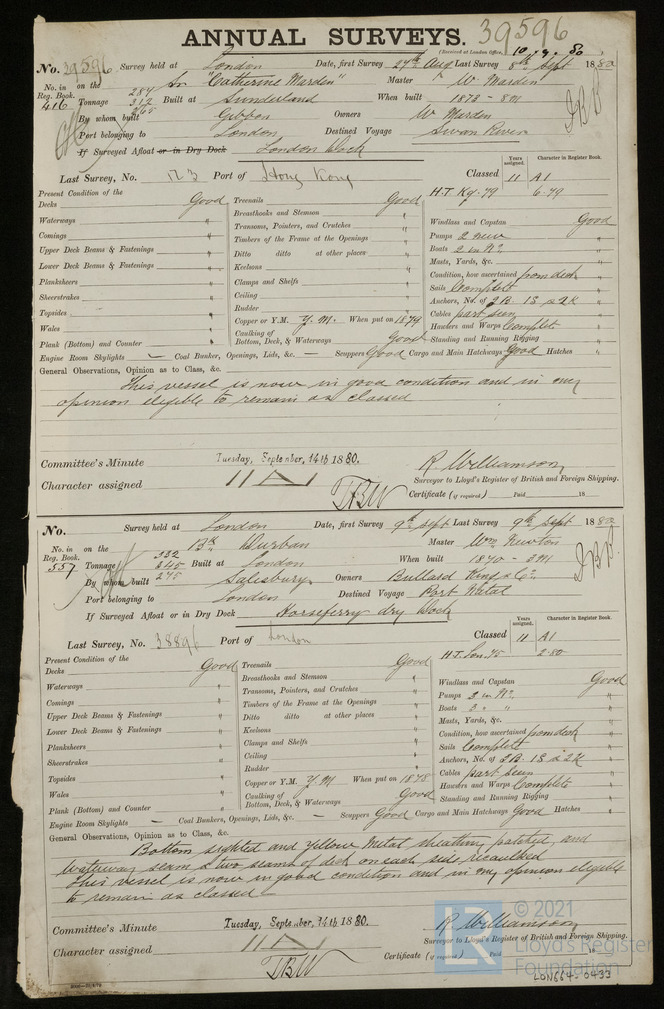 ANNUAL SURVEYS. 39596
(Received at London Office, 10/9. 80
No. 39596 Survey held at London Date, first Survey 27th Aug Last Survey 8th Sept 1880
No. in Reg. Book. 416 on the Sr "Catherine Marden" Master W Marden
Tonnage 284 312 265 Built at Sunderland When built 1873 - 8M
By whom built Gibbon Owners W Marden
Port belonging to London Destined Voyage Swan River
If Surveyed Afloat or in Dry Dock London Dock
Last Survey, No. 123 Port of Hong Kong Classed
Years assigned. 11 Character in Register Book. A1
H.T. Kg. 79 6.79
Present Condition of the
Decks Good
Waterways "
Comings "
Upper Deck Beams & Fastenings "
Lower Deck Beams & Fastenings "
Planksheers "
Sheerstrakes "
Topsides "
Wales "
Plank (Bottom) and Counter "
Treenails Good
Breasthooks and Stemson "
Transoms, Pointers, and Crutches "
Timbers of the Frame at the Openings "
Ditto ditto at other places "
Keelsons "
Clamps and Shelfs "
Ceiling "
Rudder "
Copper or Y.M. Y.M. When put on 1879
Caulking of Bottom, Deck, & Waterways Good
Windlass and Capstan Good
Pumps 2 new "
Boats 2 in No. "
Masts, Yards, &c. "
Condition, how ascertained from deck
Sails Complete "
Anchors, No. of 2B. 1S, & 2K "
Cables part seen "
Hawsers and Warps Complete "
Standing and Running Rigging "
Engine Room Skylights — Coal Bunker, Openings, Lids, &c. — Scuppers Good Cargo and Main Hatchways Good Hatches "
General Observations, Opinion as to Class, &c.
This vessel is now in good condition and in my
opinion elegible to remain as classed
Committee's Minute Tuesday, September, 14th 1880.
Character assigned
R. Williamson,
Surveyor to Lloyd's Register of British and Foreign Shipping.
Certificate (if required) Paid 18
No. Survey held at London Date, first Survey 9th Sept Last Survey 9th Sept 1880
No. in Reg. Book. 557 on the Bk Durban Master Wm Newton
Tonnage 332 345 275 Built at London When built 1870 - 3M
By whom built Salisbury Owners Bullard King & Co.
Port belonging to London Destined Voyage Port Natal
If Surveyed Afloat or in Dry Dock Horseferry dry Dock
Last Survey, No. 38896 Port of London Classed
Years assigned. 11 Character in Register Book. A1
H.T. Lon 75 2.80
Present Condition of the
Decks Good
Waterways "
Comings "
Upper Deck Beams & Fastenings "
Lower Deck Beams & Fastenings "
Planksheers "
Sheerstrakes "
Topsides "
Wales "
Plank (Bottom) and Counter "
Treenails Good
Breasthooks and Stemson "
Transoms, Pointers, and Crutches "
Timbers of the Frame at the Openings "
Ditto ditto at other places "
Keelsons "
Clamps and Shelfs "
Ceiling "
Rudder "
Copper or Y.M. Y.M When put on 1878
Caulking of Bottom, Deck, & Waterways Good
Windlass and Capstan Good
Pumps 2 in No. "
Boats 3 " " "
Masts, Yards, &c. "
Condition, how ascertained from deck
Sails Complete "
Anchors, No. of 2B. 1S & 2K "
Cables part seen "
Hawsers and Warps Complete "
Standing and Running Rigging "
Engine Room Skylights — Coal Bunkers, Openings, Lids, &c. — Scuppers Good Cargo and Main Hatchways Good Hatches "
General Observations, Opinion as to Class, &c.
Bottom sighted and Yellow Metal sheathing patched, and
Waterway seam & two seams of deck on each side recaulked
This vessel is now in good condition and in my opinion elegible
to remain as classed
Committee's Minute Tuesday, September, 14th 1880.
Character assigned
R. Williamson,
Surveyor to Lloyd's Register of British and Foreign Shipping.
Certificate (if required) Paid 18
© 2021
Lloyd's Register
Foundation
LON664-0433